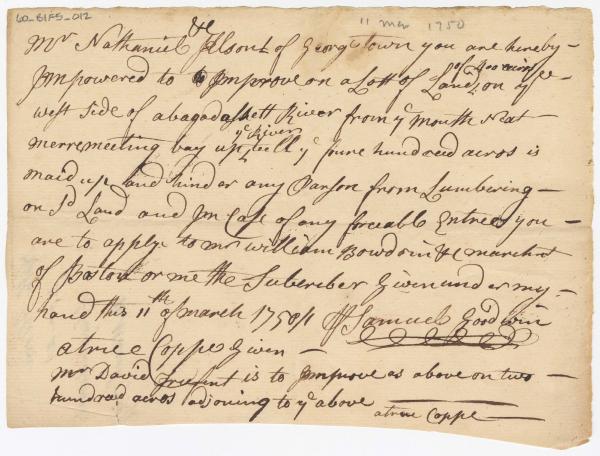 LO_61F5_012
11 mar 1750
&c
Mr Nathaniel of Georgtown you are hereby
Impowered to Improve on a Lott of Land of 400 acirs on ye
west side of abagadassett River from ye mouth Neat
merremeeting bay up ye River till ye foure hundread acros is
maid up and hinder any Parson from Lumbering
on sd Land and In Case of any forcable Entrees you
are to apply to mr william Bowdoin &c marchnt
of Baston or me the Subcriber Given under my
hand this 11th of march 1750/1 Samuel Goodwin
atrue Coppe Given
Mr David is to Improve as above on two
hundread acros adjoining to ye above
atrue Coppe